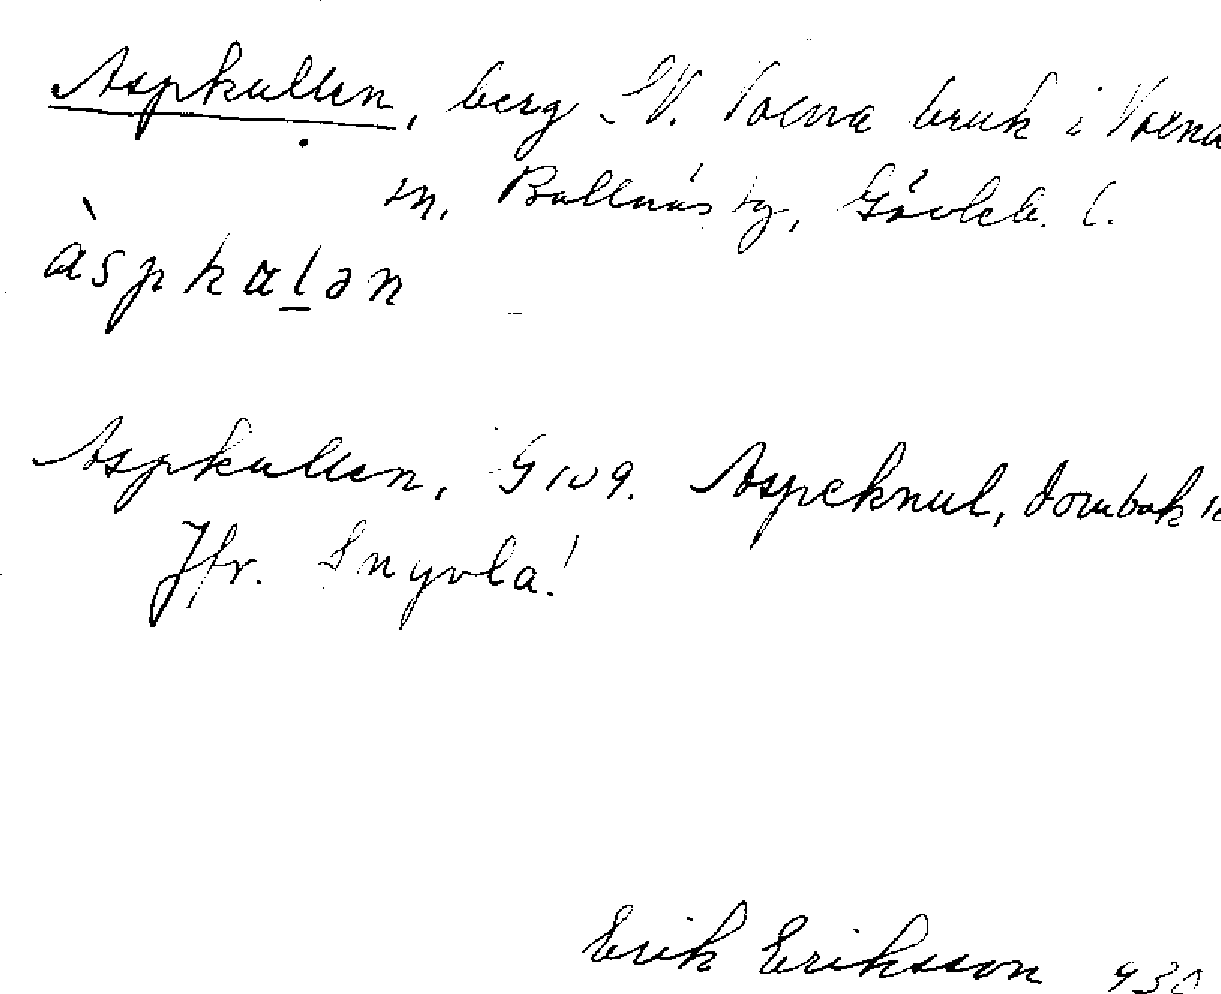 Aspkullen, berg SV. Voxna bruk i Voxna
sn, Bollnäs tg, Gävleb. l.
àspkaḷən
Aspkullen, G 109. Aspeknul, dombok
Jfr. Snyvla!
Erik Eriksson 930